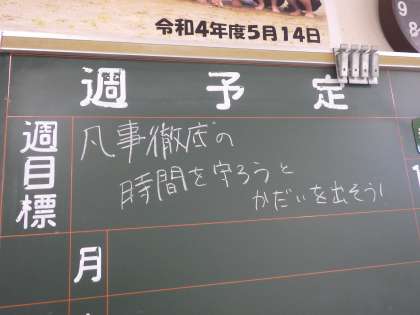 令和4年度5月14日
9
8
週予定
週目標
凡事徹底の
時間を守ろうと
かだいを出そう!
月